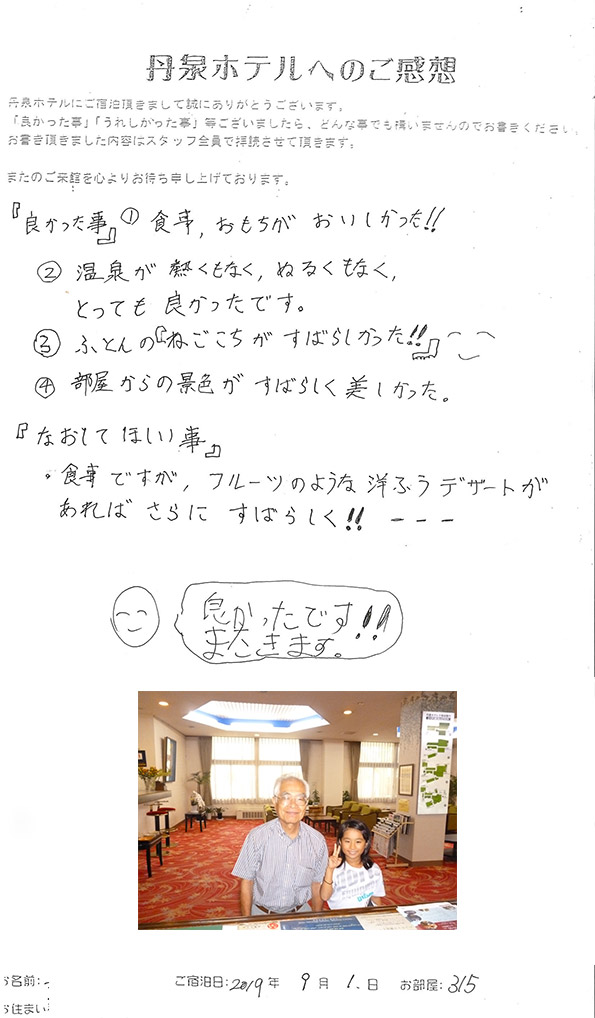 丹泉ホテルへのご感想
丹泉ホテルにご宿泊頂きまして誠にありがとうございます。
「良かった事」「うれしかった事」等ございましたら、どんな事でも構いませんのでお書きください。
お書き頂きました内容はスタッフ全員で拝読させて頂きます。
またのご来館を心よりお待ち申し上げております。
『良かった事』① 食事, おもちが おいしかった!!
② 温泉が 熱くもなく, ぬるくもなく,
とっても 良かったです。
③ ふとんの『ねごこちが すばらしかった!!』
④ 部屋からの景色が すばらしく 美しかった。
『なおしてほしい事』
・食事ですが, フルーツのような 洋ふうデザートが
あれば さらに すばらしく!! ーーー
良かったです!!
またきます。
お名前:
ご宿泊日:2019年 9月 1日 お部屋:315
お住まい